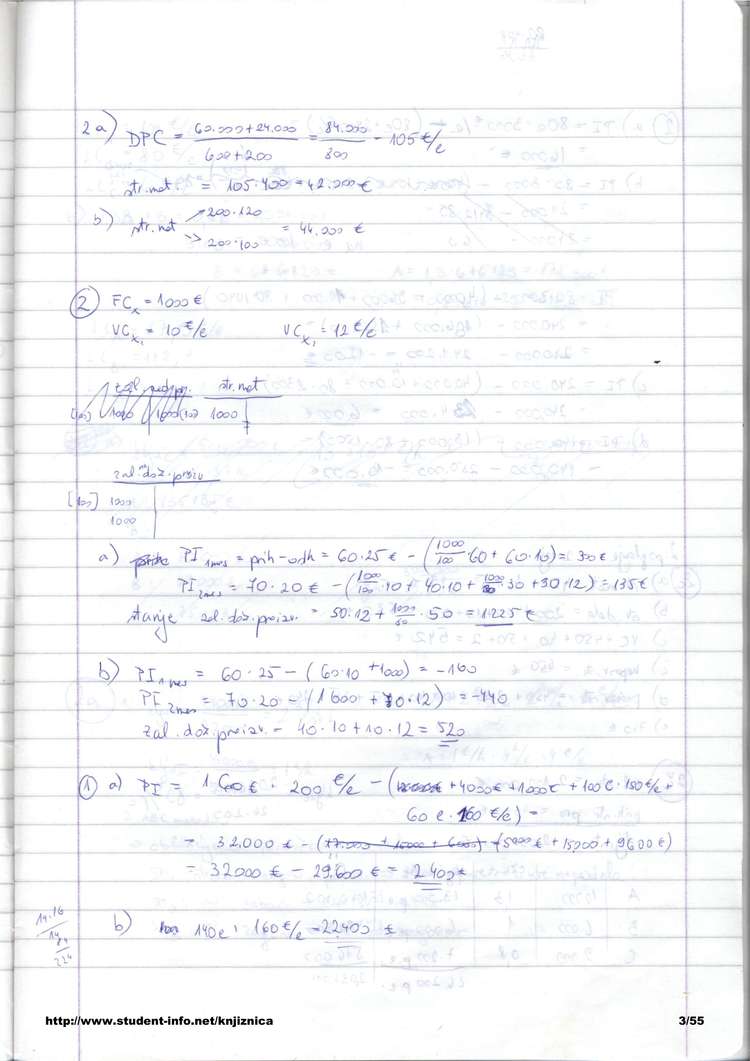 2a) DPC = 60.000+24.000 / 600+200 = 84.000 / 800 = 105 €/e
str.mat. = 105·400 = 42.000 €
b) str.mat → 200·120
→ 200·100 = 44.000 €
② FCx = 1000 €
VCx₁ = 10 €/e VCx₁ = 12 €/e
zal. str.mat
[100] 1000 1000 1000
zal. dok. proizv
[100] 1000
1000
a) PI 1mes = prih-odh = 60·25 € - (1000/100·60 + 60·10) = 300 €
PI 2mes = 70·20 € - (1000/100·10 + 40·10 + 1000/80·30 + 30·12) = 135 €
stanje zal. dok. proizv. = 50·12 + 1000/80·50 = 1.225 €
b) PI 1mes = 60·25 - (60·10 + 1000) = -100
PI 2mes = 70·20 - (1600 + 70·12) = -440
zal. dok. proizv. = 40·10 + 10·12 = 520
① a) PI = 160 e · 200 €/e - ( + 4000 € + 1000 € + 100 e · 150 €/e +
60 e · 160 €/e) =
= 32.000 € - (5000 € + 15000 + 9600 €)
= 32000 € - 29.600 € = 2400 €
b) 140 e · 160 €/e = 22400 €
14·16
14
84
224
http://www.student-info.net/knjiznica 3/55